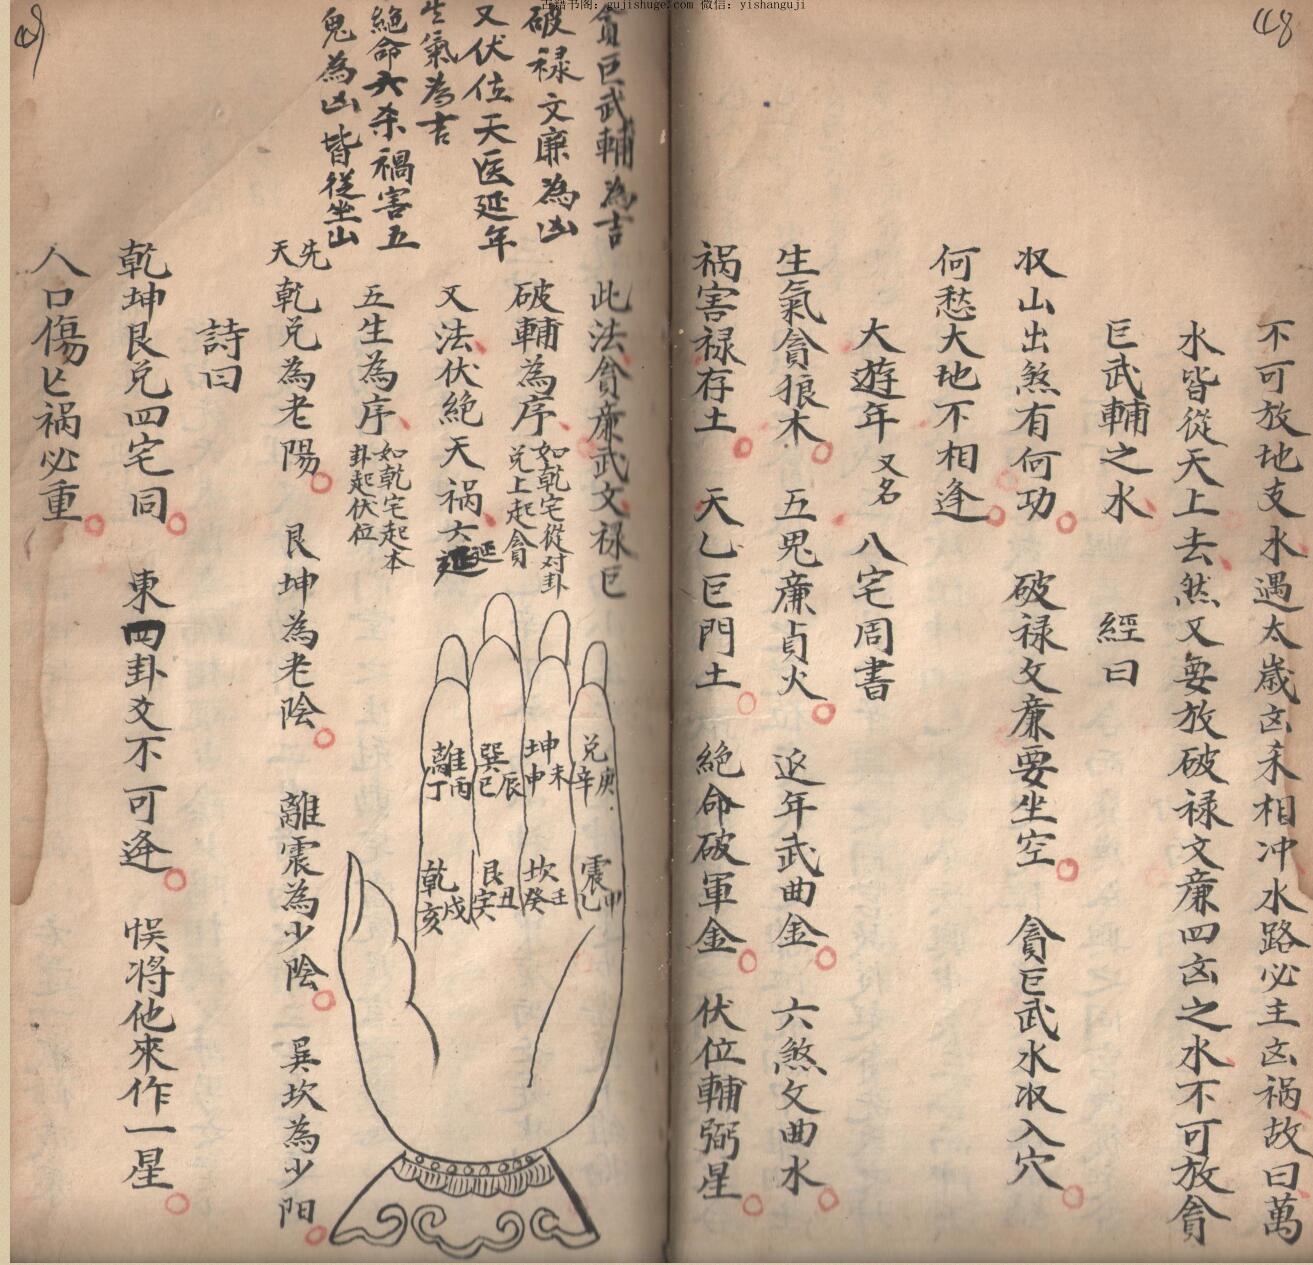 古籍书阁：gujishuge.com 微信：yishanguji
48
不可放地支水遇太歲凶禾相冲水路必主凶祸故曰萬
水皆從天上去然又要放破禄文廉四凶之水不可放貪
巨武輔之水 經曰
収山出煞有何功 破禄文廉要坐空 貪巨武水収入穴
何愁大地不相逢
大遊年又名八宅周書
生氣貪狼木 五鬼廉貞火 返年武曲金 六煞文曲水
祸害禄存土 天乙巨門土 絶命破軍金 伏位輔弼星
49
貪巨武輔為吉
破禄文廉為凶
又伏位天医延年
生氣為吉
絕命六杀禍害五
鬼為凶皆從坐山
此法貪廉武文禄巨
破輔為序如乾宅從对卦兑上起貪
又法伏絶天祸六延
五生為序如乾宅起本卦起伏位
兑庚辛
坤未申
巽辰巳
離丙丁
震甲乙
坎壬癸
艮丑寅
乾戌亥
先天乾兑為老陽 艮坤為老陰 離震為少陰 巽坎為少阳
詩曰
乾坤艮兑四宅同 東四卦爻不可逢 悮将他來作一星
人口傷亡祸必重